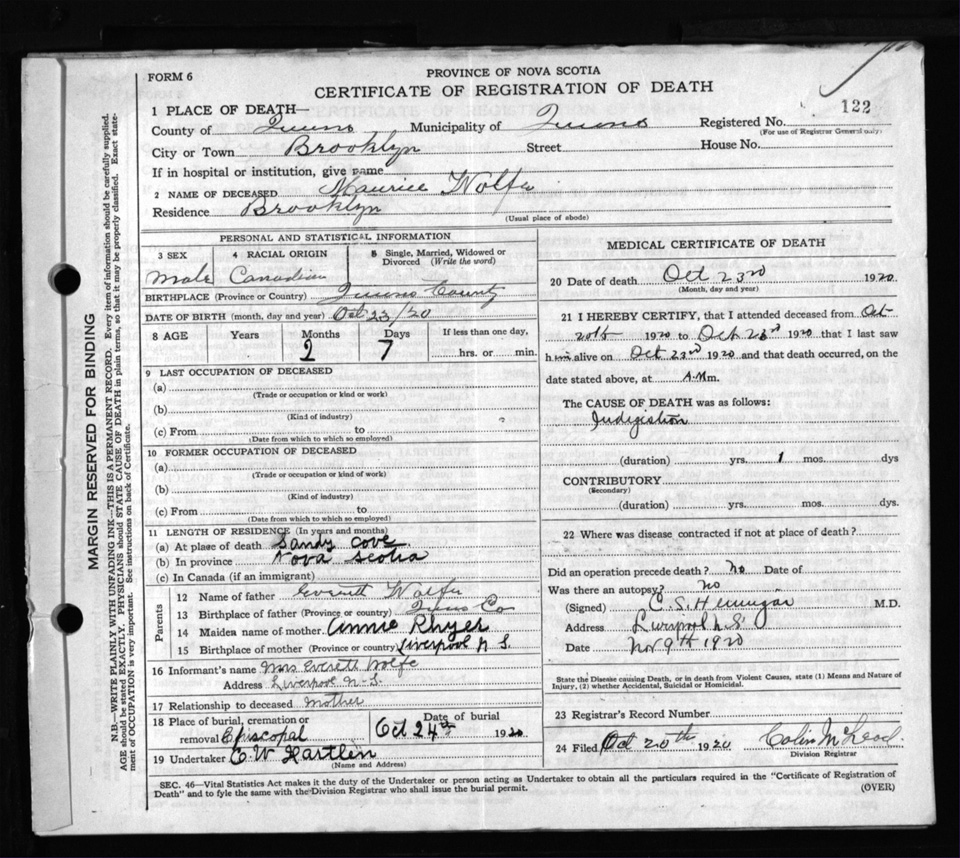 FORM 6
PROVINCE OF NOVA SCOTIA
CERTIFICATE OF REGISTRATION OF DEATH
122
1 PLACE OF DEATH—
County of Queens Municipality of Queens Registered No.
(For use of Registrar General only)
City or Town Brooklyn Street House No.
If in hospital or institution, give name
2 NAME OF DECEASED Maurice Wolfe
Residence Brooklyn
(Usual place of abode)
PERSONAL AND STATISTICAL INFORMATION
3 SEX 4 RACIAL ORIGIN 5 Single, Married, Widowed or Divorced (Write the word)
Male Canadian
BIRTHPLACE (Province or Country) Queens County
DATE OF BIRTH (month, day and year) Oct 23/20
8 AGE Years Months Days If less than one day,
2 7 hrs. or min.
9 LAST OCCUPATION OF DECEASED
(a)
(Trade or occupation or kind or work)
(b)
(Kind of industry)
(c) From to
(Date from which to which so employed)
10 FORMER OCCUPATION OF DECEASED
(a)
(Trade or occupation or kind of work)
(b)
(Kind of industry)
(c) From to
(Date from which to which so employed)
11 LENGTH OF RESIDENCE (In years and months)
(a) At place of death Sandy Cove
(b) In province Nova Scotia
(c) In Canada (if an immigrant)
Parents
12 Name of father Everett Wolfe
13 Birthplace of father (Province or country) Queens Co
14 Maiden name of mother Annie Rhyer
15 Birthplace of mother (Province or country) Liverpool N S.
16 Informant's name Mrs Everett Wolfe
Address Liverpool N.S.
17 Relationship to deceased Mother
18 Place of burial, cremation or removal Episcopal
Date of burial Oct 24th 1920
19 Undertaker E.W Hartlin
(Name and Address)
MEDICAL CERTIFICATE OF DEATH
20 Date of death Oct 23rd 1920
(Month, day and year)
21 I HEREBY CERTIFY, that I attended deceased from Oct
20th 1920 to Oct 23rd 1920 that I last saw
him alive on Oct 23rd 1920 and that death occurred, on the
date stated above, at A.M m.
The CAUSE OF DEATH was as follows:
Indigestion
(duration) yrs. 1 mos. dys
CONTRIBUTORY
(Secondary)
(duration) yrs. mos. dys.
22 Where was disease contracted if not at place of death?
Did an operation precede death? No Date of
Was there an autopsy? No
(Signed) C. S. Hennigar M.D.
Address Liverpool N.S.
Date Nov 9th 1920
State the Disease causing Death, or in death from Violent Causes, state (1) Means and Nature of
Injury, (2) whether Accidental, Suicidal or Homicidal.
23 Registrar's Record Number
24 Filed Oct 20th 1920 Colin McLeod
Division Registrar
SEC. 46—Vital Statistics Act makes it the duty of the Undertaker or person acting as Undertaker to obtain all the particulars required in the "Certificate of Registration of
Death" and to fyle the same with the Division Registrar who shall issue the burial permit.
(OVER)
MARGIN RESERVED FOR BINDING
N.B.—WRITE PLAINLY WITH UNFADING INK—THIS IS A PERMANENT RECORD. Every item of information should be carefully supplied.
AGE should be stated EXACTLY. PHYSICIANS should STATE CAUSE OF DEATH in plain terms, so that it may be properly classified. Exact statement of OCCUPATION is very important. See instructions on back of Certificate.